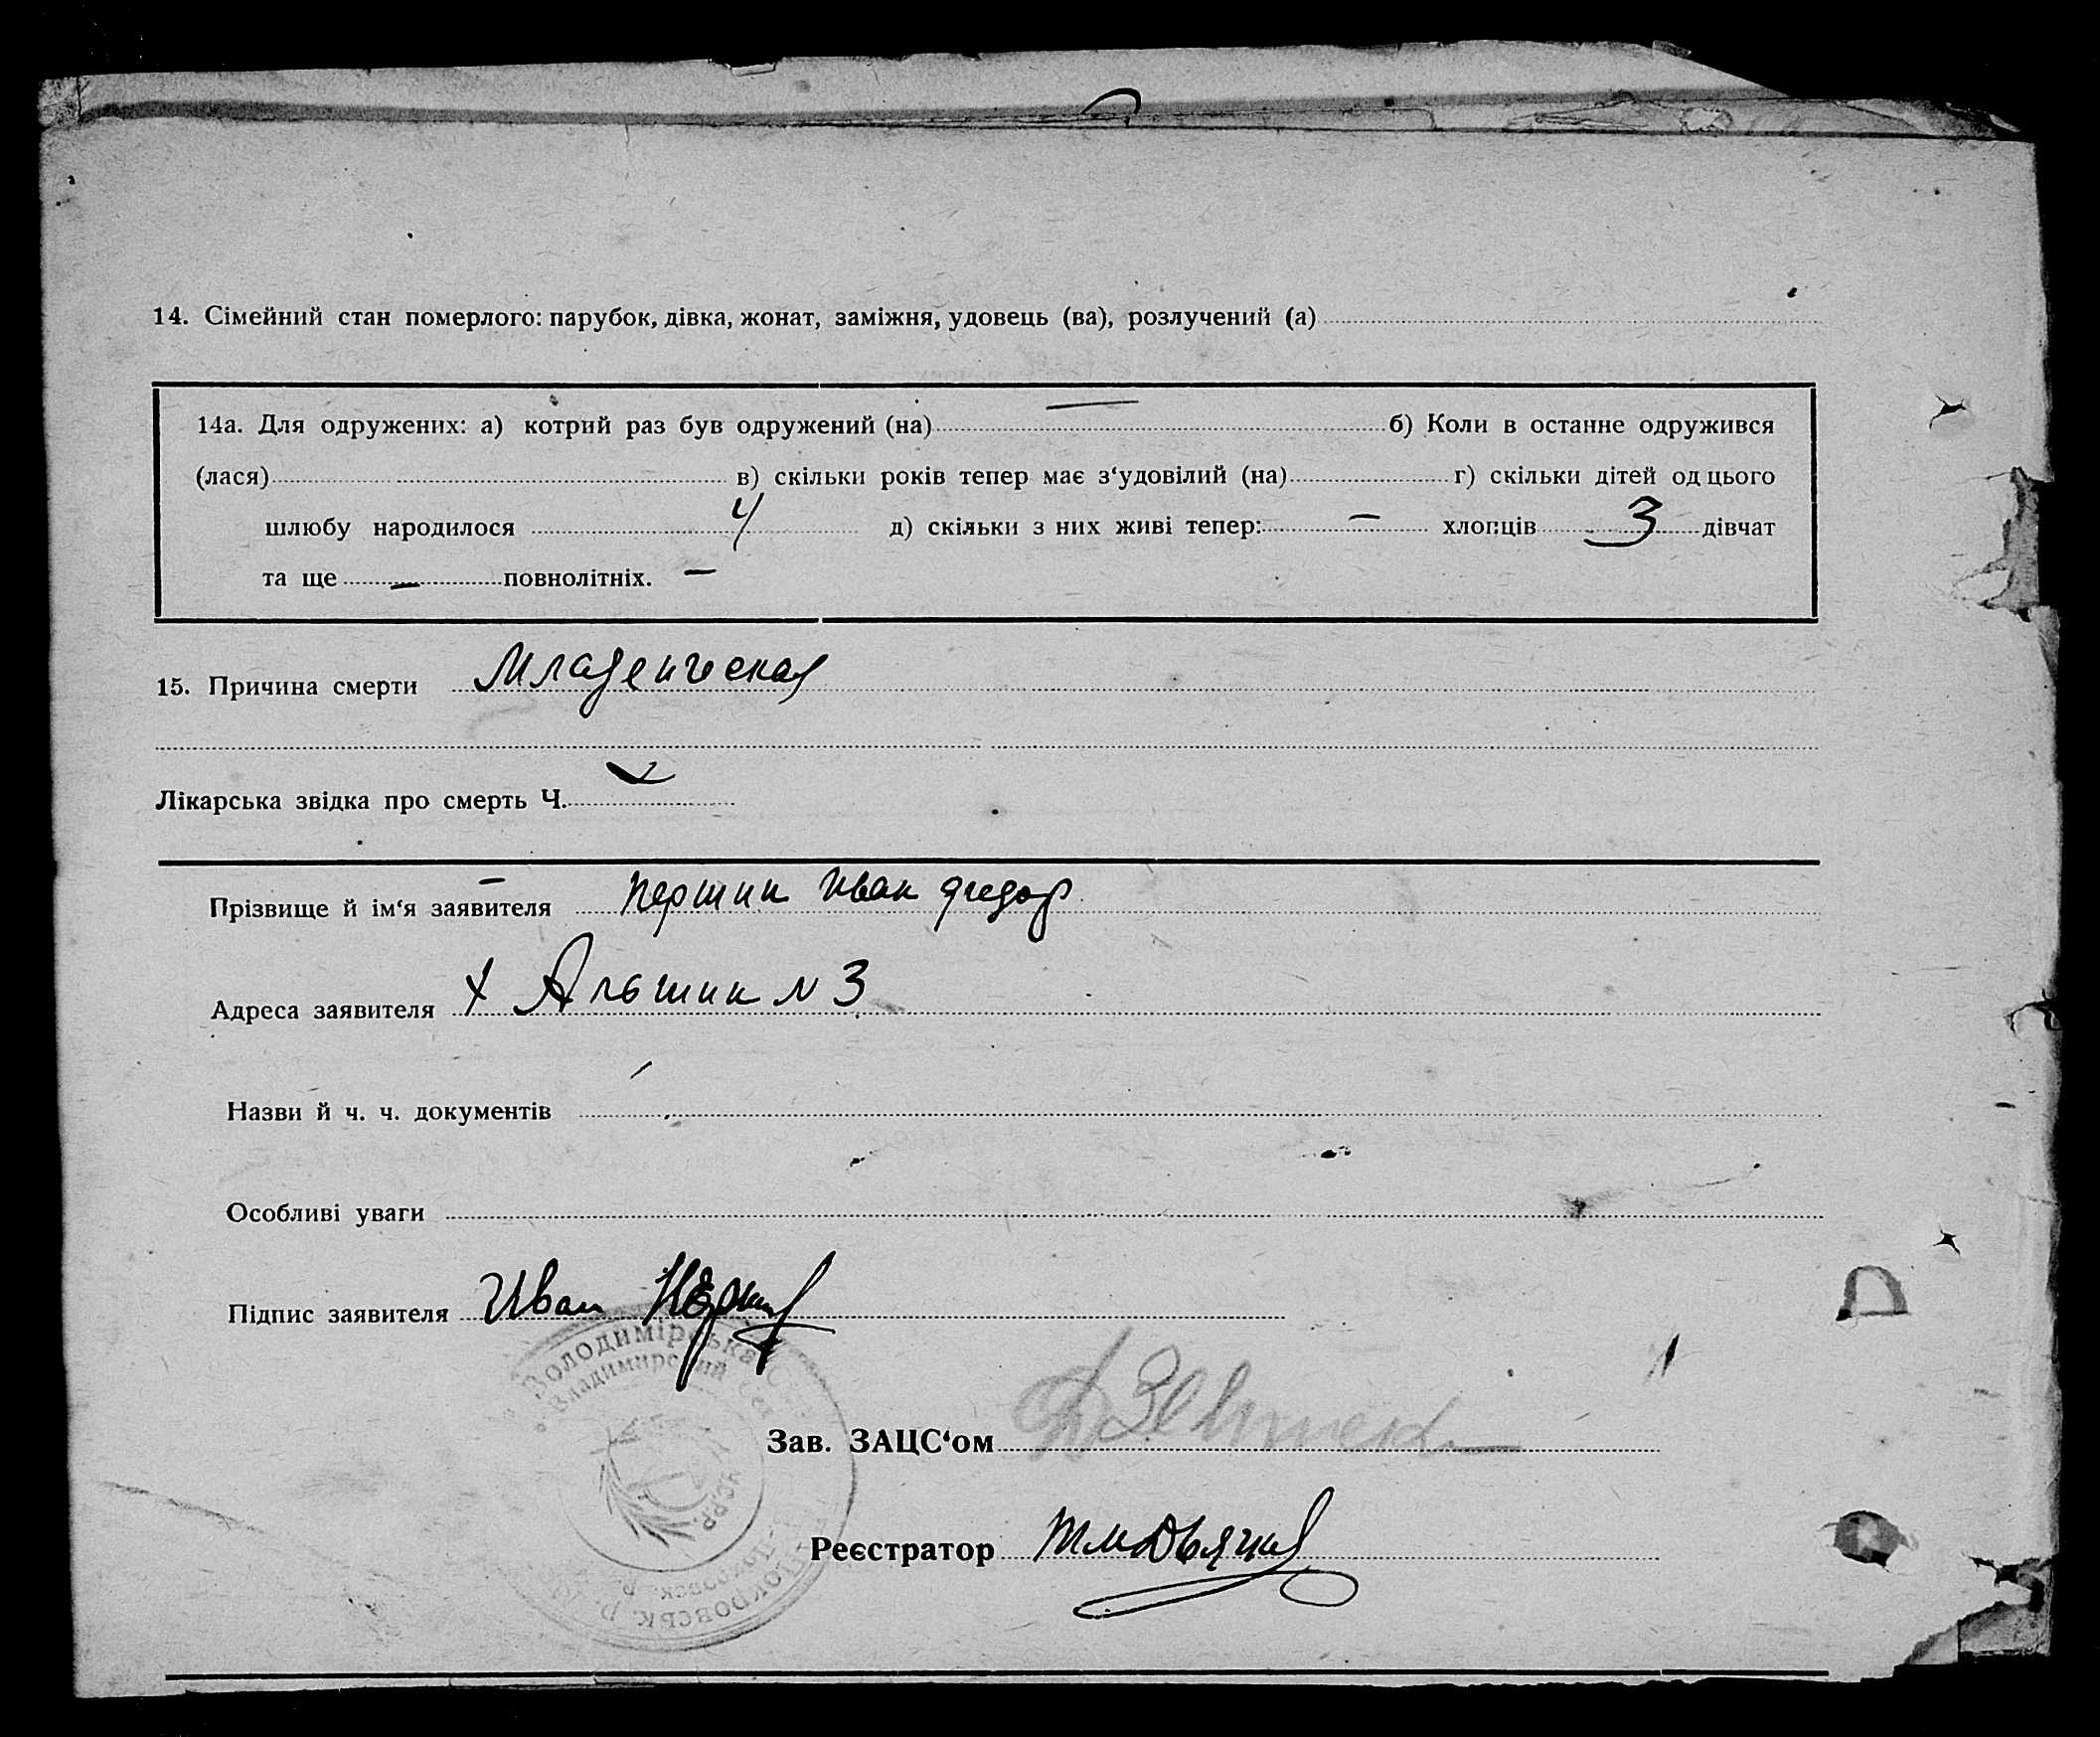 14. Сімейний стан померлого: парубок, дівка, жонат, заміжня, удовець (ва), розлучений (а)
14а. Для одружених: а) котрий раз був одружений (на) — б) Коли в останнє одружився
(лася) в) скільки років тепер має з‘удовілий (на) г) скільки дітей од цього
шлюбу народилося 4 д) скільки з них живі тепер: — хлопців 3 дівчат
та ще — повнолітніх. —
15. Причина смерти Младенческая
Лікарська звідка про смерть Ч.
Прізвище й ім‘я заявителя Першин Иван Федор
Адреса заявителя х Альшин N 3
Назви й ч. ч. документів
Особливі уваги
Підпис заявителя Иван
Володимірська
Владимирский
УСРР.
Покровськ. р.
Покровск. р.
Зав. ЗАЦС‘ом
Реєстратор